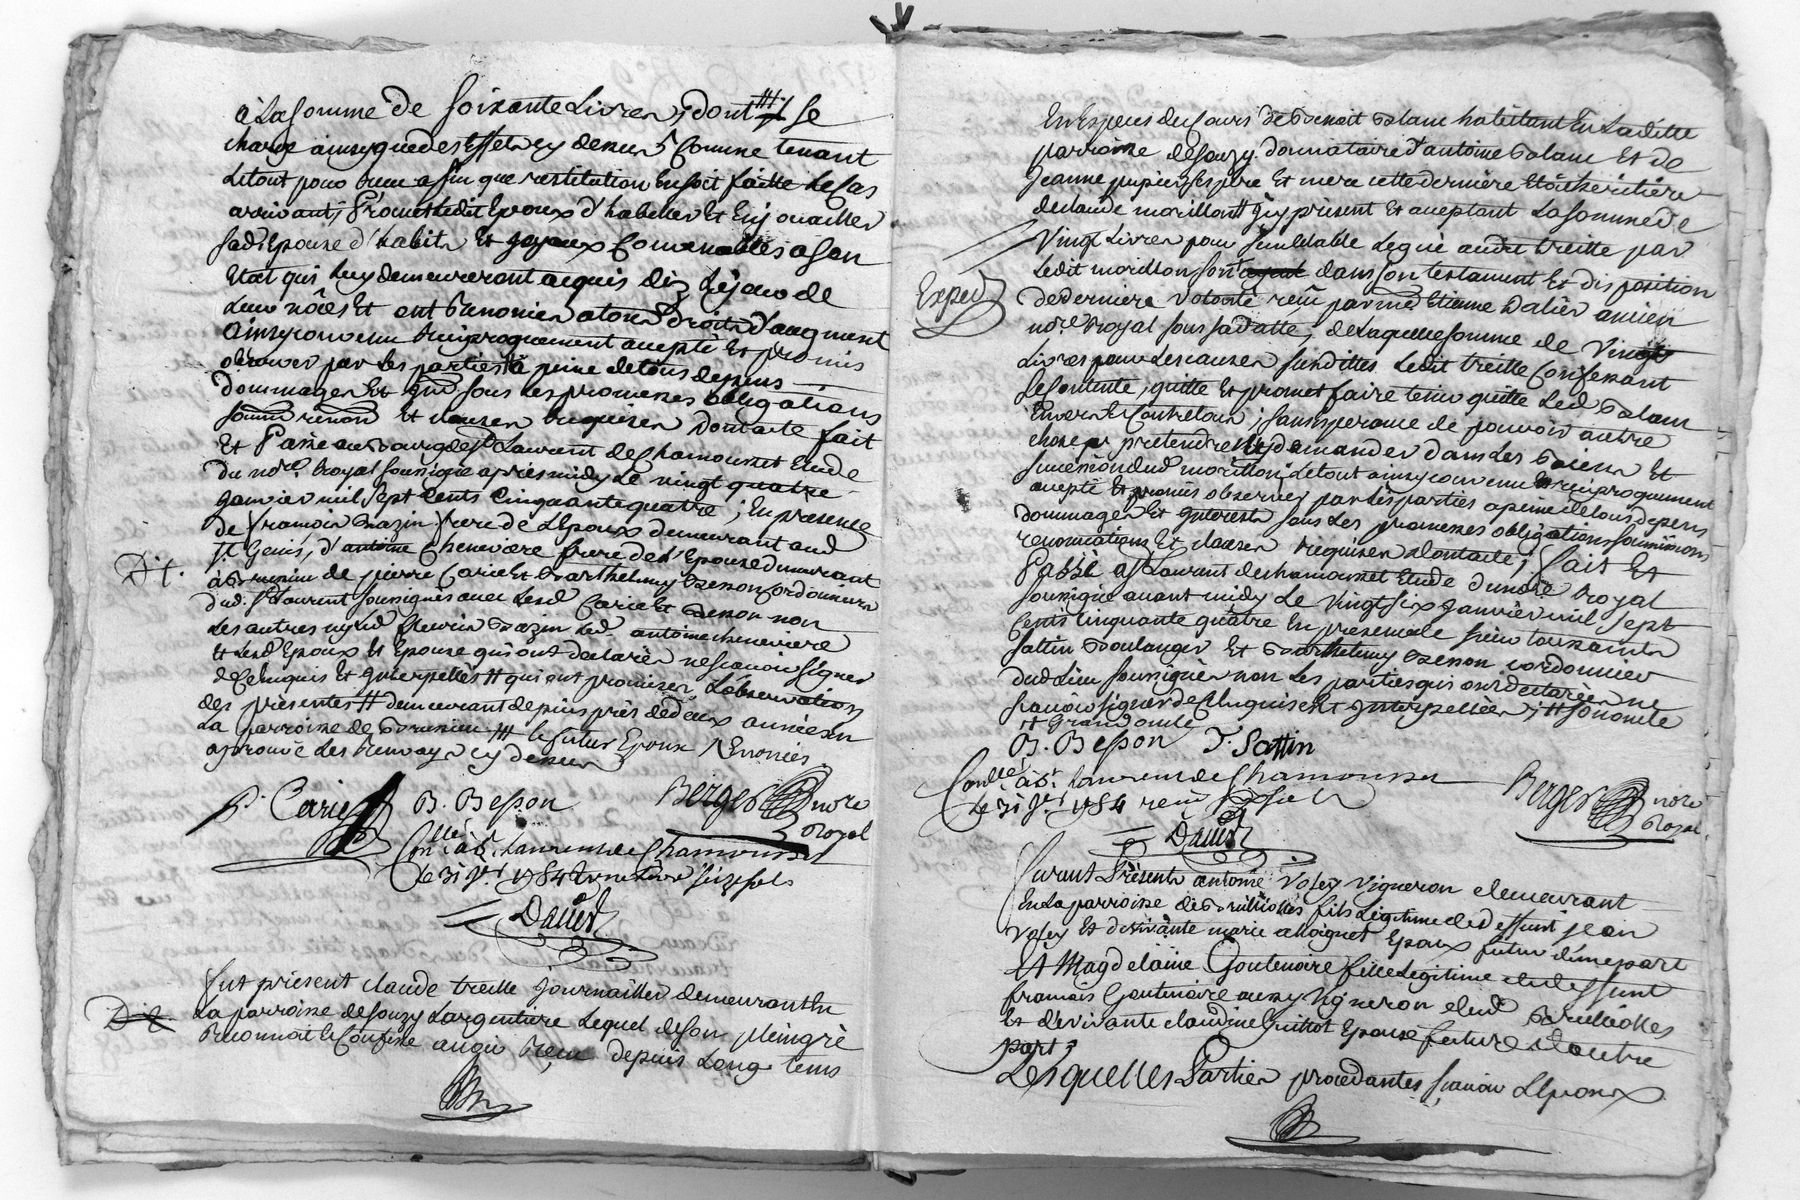 à la somme de soixante Livres, dont /// se
charge ainsy que des Effets cy dessus Comme tenant
Le tout pour receu affin que restitution En soit faitte Le Cas
arrivant, Promet Ledit Epoux d'habiller Et Enjouailler
sad. Epouse d'habits Et joyaux Convenables a son
Etat qui Luy demeureront acquis dez Le jour de
Leur nôces Et ont Renoncer a tous droits d'augment
ainsy convenu reciproquement accepté Et promis
observer par Les parties à peine de tous depens
dommages Et sous Les promesses obligations
soum renon Et clauses requises Dont acte fait
Et Passé au Bourg de St Laurent de Chamousset Etude
du nore Royal soussigné après midy Le vingt quatre
janvier mil sept cents cinquante quatre ; En presence
de françois Bazin frere de L'Epoux demeurant aud
St Genis, d'antoine Cheneviere frere de L'Epouse demeurant
Dt.
à Brunieu de pierre Carie Et Barthelmy Besson Cordonniers
dud. St Laurent soussignés avec Lesd Carie Et Besson non
Les autres ny Led fleurie Bazin Led. antoine cheneviere
Et Lesd Epoux Et Epouse qui ont declarés ne scavoir signer
de Ce Enquis Et Interpellés # qui ont promiser L'observation
des presentes # demeurant depuis près de deux années en
La parroisse de Brunieu /// le futur Epoux
aprouvé Les renvoys cy dessus
P. Carie B. Besson Berger nore
Royal
Conllé à St. Laurent de Chamousset
Le 31 Jer 1754 Livre seize sols
David
fut présent claude treille journaillier demeurant En
Dt
La parroisse de souzy Largentiere Lequel de son plein gré
Reconnoit Et Confesse avoir Receu depuis Long tems
En Especes du Cours de Benoit Balain habitant En Laditte
parroisse de souzy donnataire d'antoine Balain Et de
Jeanne pupier ses pere Et mere cette derniere Etôit heritiére
de claude morillon # icy présent Et acceptant La somme de
Vingt Livres pour semblable Legué audit treille par
Ledit morillon son dans son testament Et disposition
Exped
de derniere Volonté reçu par me Etienne Dalier ancien
nore Royal sous sa datte, de Laquelle somme de Vingt
Livres pour Les causes susdittes Ledit treille Confessant
Se Contente, quitte Et promet faire tenir quitte Led Balain
Envers Et Contre tous ; sans esperance de pouvoir autre
chose pretendre Ny demander dans Les Biens Et
succession dud morillon Le tout ainsy convenu reciproquement
accepté Et promis observer par Les parties a peine de tous depens
dommages Et interests sous Les promesses obligations soumissions
renonciations Et clauses requises dont acte ; fait Et
Passé a St Laurent de chamousset Etude du nore royal
soussigné avant midy Le Vingt six janvier mil sept
Cents cinquante quatre En presence de sieur toussaint
sattin Boulanger Et Barthelemy Besson cordonnier
dud Lieu soussignés non Les parties qui ont declarées ne
scavoir signer de Ce Enquises Et Interpellées ; # son oncle
Et Grand oncle
B. Besson T. Sattin
Conllé à St. Laurent de Chamousset
Le 31 Jer 1754 receu sols
Berger nore
Royal.
David
furent Présents antoine Vosey Vigneron demeurant
En La parroisse de Brullioles fils Legitime de deffunt jean
Vosey Et de vivante marie Epoux futur d'une part
Et Magdelaine Goutenoire fille Legitime de deffunt
francois Goutenoire aussy Vigneron dud Brullioles
Et de vivante claudine Guillot Epouse future d'autre
part ;
Lesquelles Parties procedantes scavoir L'Epoux